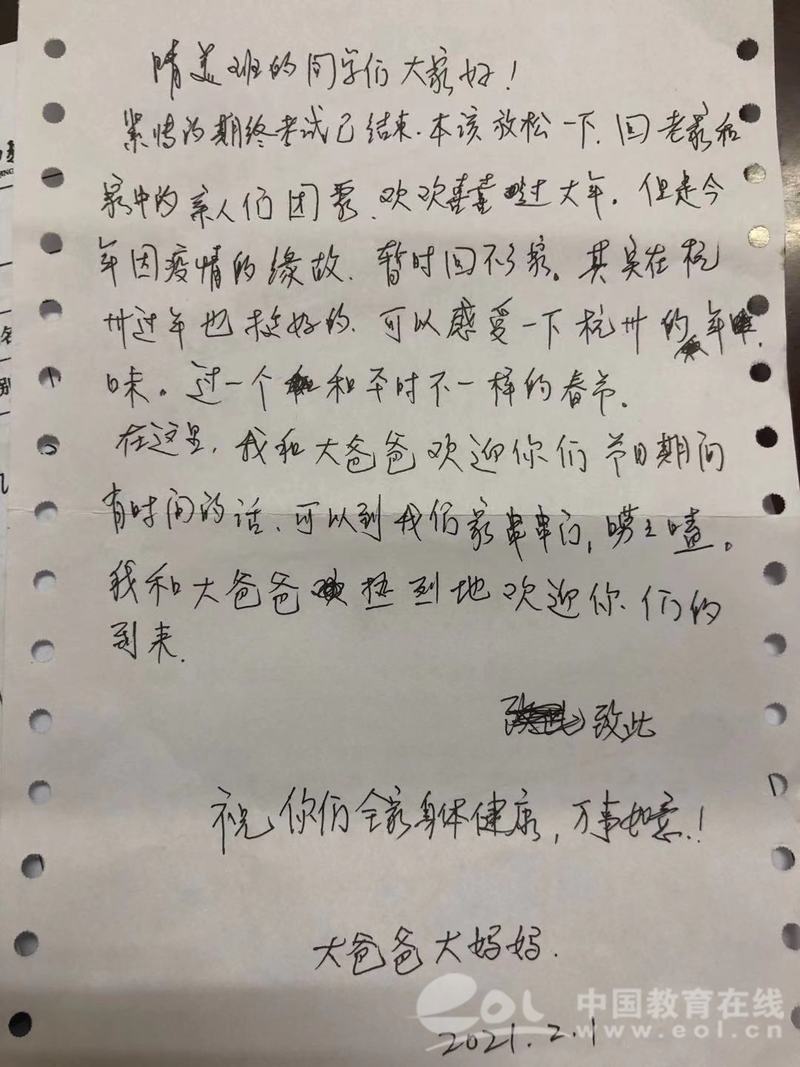 晴美班的同学们大家好!
紧情的期终考试已结束.本该放松一下.回老家和
家中的亲人们团聚、欢欢喜喜过大年.但是今
年因疫情的缘故.暂时回不了家。其实在杭
卅过年也挺好的.可以感受一下杭卅的年
味。过一个和平时不一样的春节.
在这里,我和大爸爸欢迎你们节日期间
有时间的话、可以到我们家串串门,唠嗑。
我和大爸爸热烈地欢迎你们的
到来.
致此
祝你们全家身体健康,万事如意!
大爸爸大妈妈.
2021.2.1
eol 中国教育在线
www.eol.cn